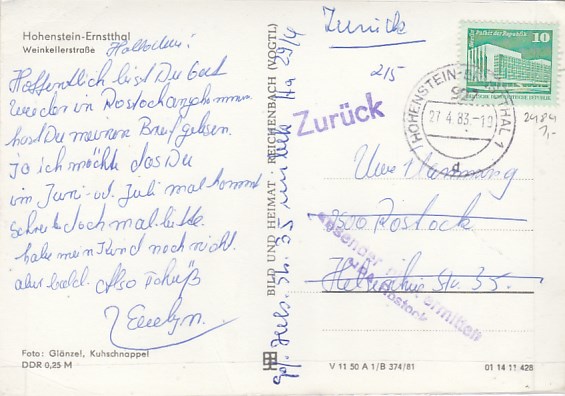 Hohenstein-Ernstthal
Weinkellerstraße
Hoffentlich bist Du gut
wieder in Rostock angekommen
hast Du meinen Brief gelesen.
Ja ich möchte das Du
im Juni od. Juli mal kommst
Schreib doch mal bitte.
habe mein Kind noch nicht.
aber bald. Also Tschüß
Evelyn.
Foto: Glänzel, Kuhschnappel
DDR 0,25 M
BILD UND HEIMAT · REICHENBACH (VOGTL)
29/4
Zurück
2/5
Zurück
10
HOHENSTEIN-ERNSTTHAL 1
27.4.83-19
d
Uwe
2500 Rostock
Str. 35.
Absender nicht ermitteln
Rostock
V 11 50 A 1/B 374/81
01 14 11 428